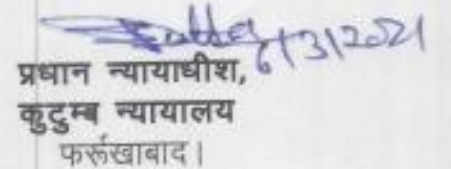 6/3/2021
प्रधान न्यायाधीश,
कुटुम्ब न्यायालय
फर्रूखाबाद।